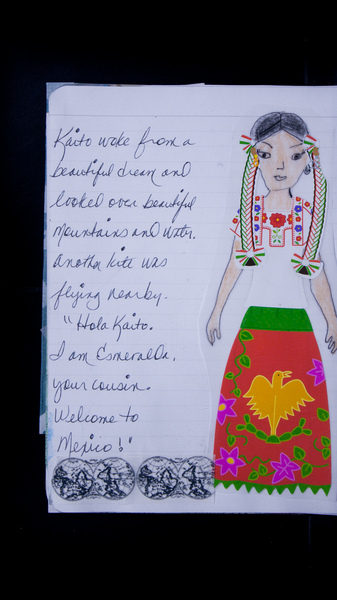 Kaito woke from a
beautiful dream and
looked over beautiful
mountains and water.
Another kite was
flying nearby.
"Hola Kaito.
I am Esmeralda,
your cousin.
Welcome to
Mexico!"